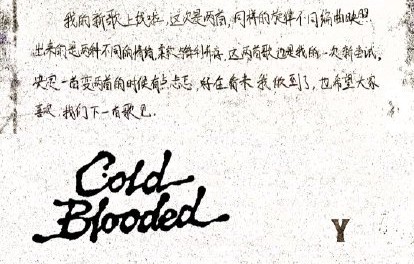 我的新歌上线啦，这次是两首，同样的旋律不同编曲映照
出来的是两种不同的情绪，这两首歌也是我的一次新尝试，
决定一首变两首的时候有点忐忑，好在看来我做到了，也希望大家
喜欢，我们下一首歌见.
Cold
Blooded
Y